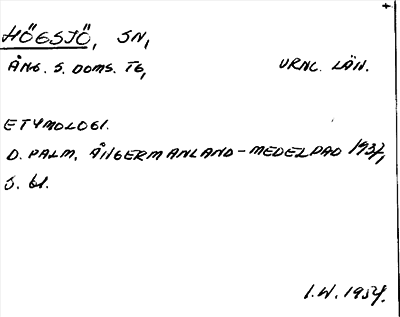 HÖGSJÖ, SN,
ÅNG. S. DOMS. TG, VRNL. LÄN.
ETYMOLOGI.
D. PALM, ÅNGERMANLAND-MEDELPAD 1937,
S. 61.
I.W. 1954.